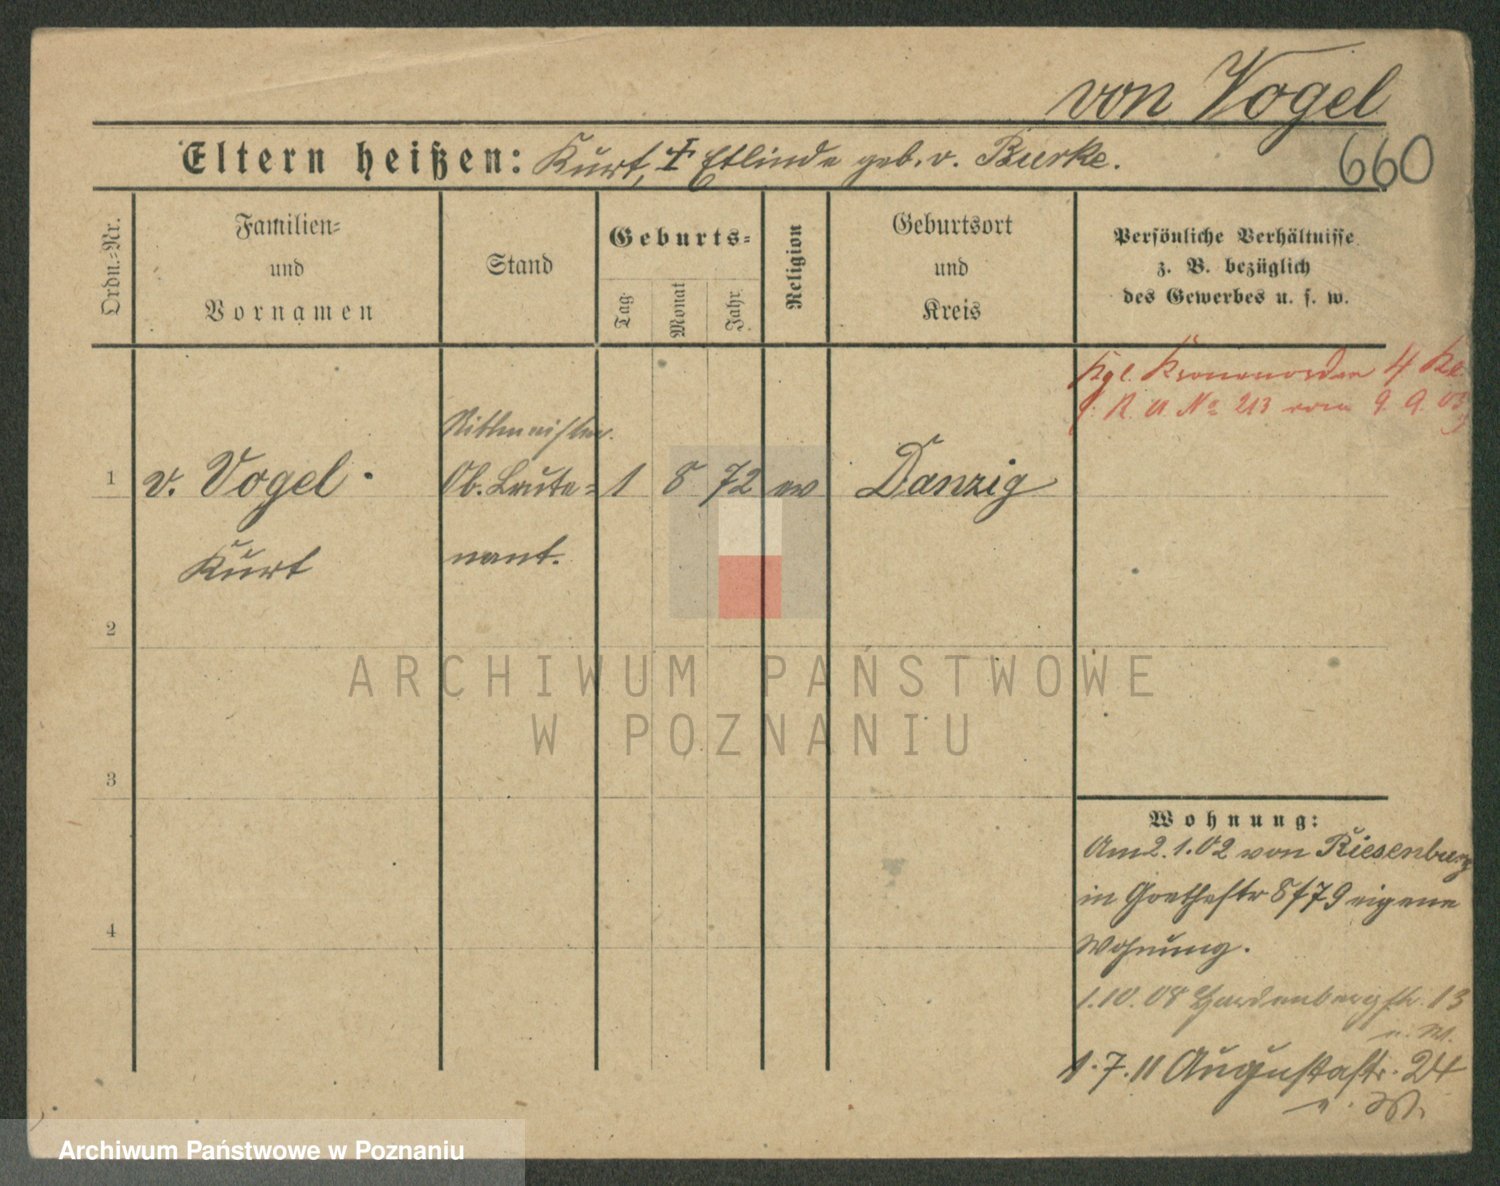 von Vogel
Eltern heißen: Kurt, † Etlinde geb. v. Burke.
660
Ordn.-Nr.
Familien-
und
Vornamen
Stand
Geburts-
Tag
Monat
Jahr
Religion
Geburtsort
und
Kreis
Persönliche Verhältnisse
z. B. bezüglich
des Gewerbes u. s. w.
Kgl. Kronenorden 4 Kl
R. A. No 213 vom 9. 9. 03
Rittmeister.
1 v. Vogel Ob. Leute- 1 8 72 ev Danzig
Kurt nant.
2
3
4
Wohnung:
Am 2.1.02 von Riesenburg
in Goethestr 8/79 eigene
Wohnung.
1.10.08 Hardenbergstr. 13
e. W.
1.7.11 Augustastr. 24
e. W.
ARCHIWUM PAŃSTWOWE
W POZNANIU
Archiwum Państwowe w Poznaniu